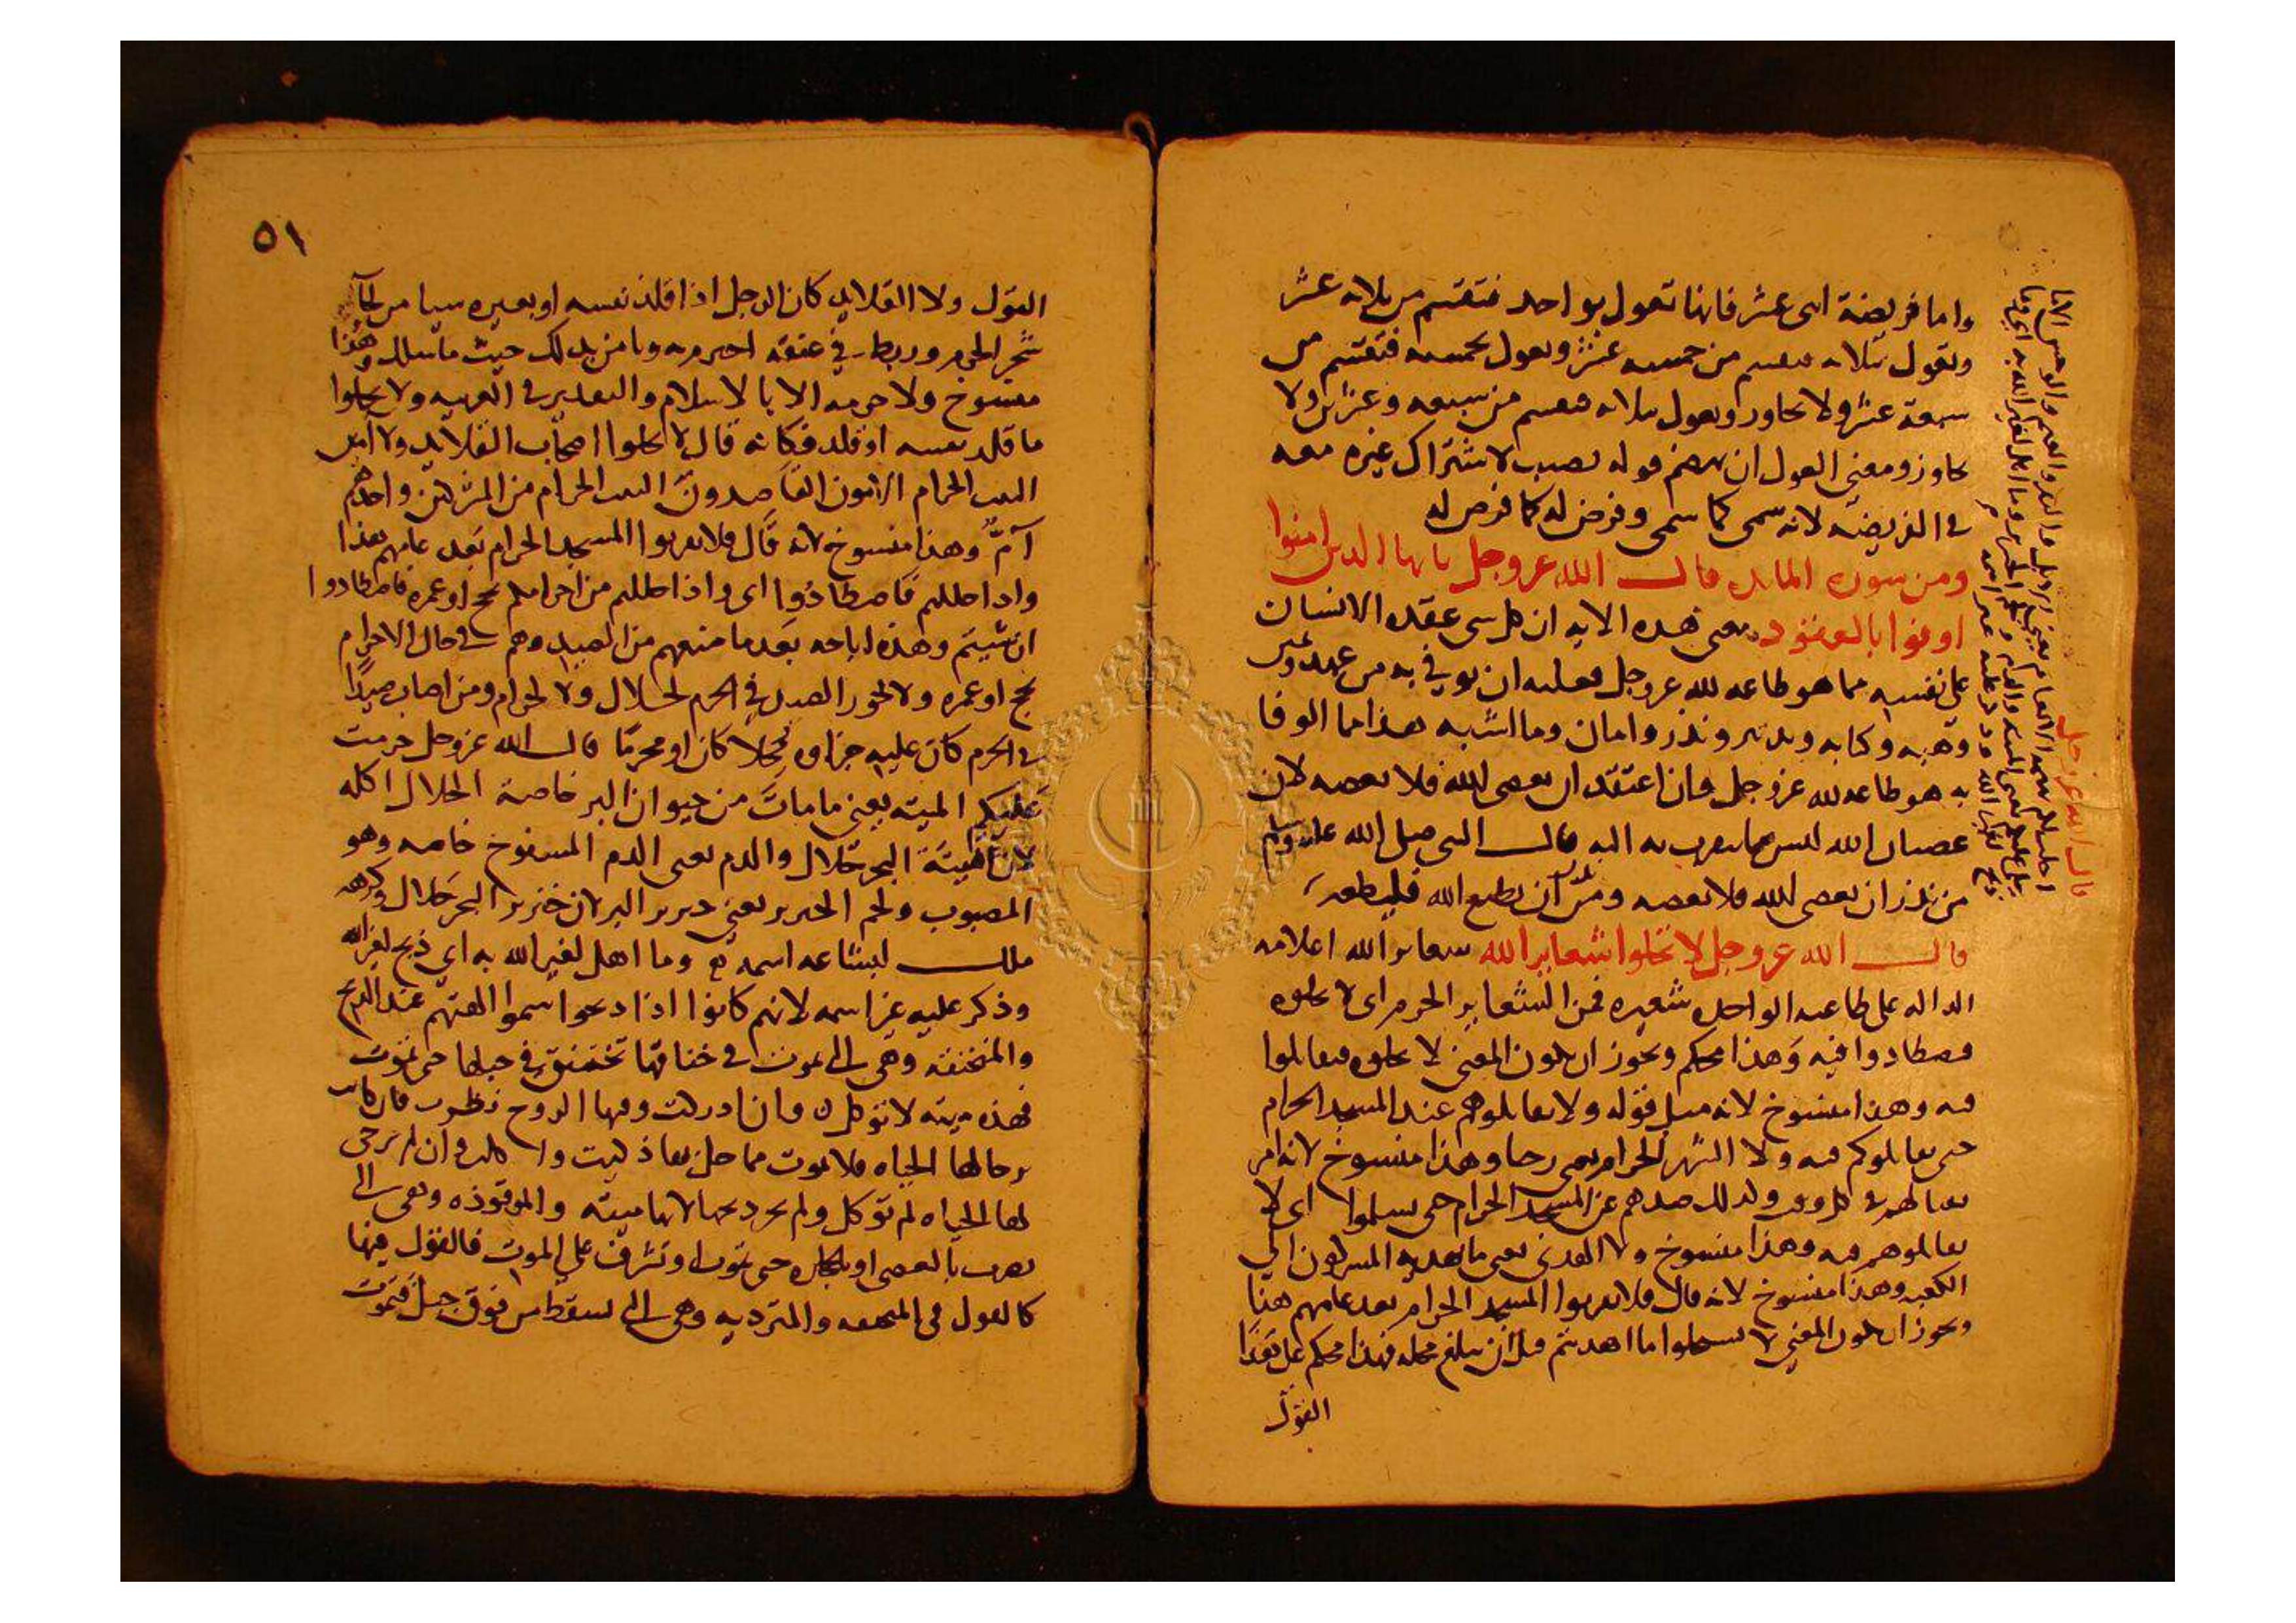 واما فريضة اثنى عشر فانها تعول بواحد فتقسم من ثلاثه عشر
وتعول بثلاثه فتقسم من خمسه عشر وتعول بخمسه فتقسم من
سبعة عشر ولا تجاوز وتعول بثلاثه فتقسم من سبعه وعشرين ولا
تجاوز ومعنى العول ان ينقص قوله نصيب لاشتراك غيره معه
في الفريضه لانه سمى كما سمى وفرض له كما فرض له
ومن سورة المائده قال الله عز وجل يايها الذين امنوا
اوفوا بالعقود معنى هذه الايه ان كل شى عقده الانسان
على نفسه مما هو طاعه لله عز وجل فعليه ان يوفي به من عهد
وهبه وكتابه وتدبير ونذر وامان وما اشبه هذا مما الوفا
به هو طاعه لله عز وجل فان اعتقد ان يعصى الله فلا يعصه لان
عصيان الله ليس مما يتقرب به اليه قال النبي صلى الله عليه وسلم
من نذر ان يعصى الله فلا يعصه ومن نذر ان يطيع الله فليطعه
قال الله عز وجل لا تحلوا شعاير الله شعاير الله اعلامه
الداله على طاعته الواحده شعيره فمن الشعاير الحرم اى لا تحلوه
فتصطادوا فيه وهذا محكم ويجوز ان يكون المعنى لا تحلوه فتقاتلوا
فيه وهذا منسوخ لانه مثل قوله ولا تقاتلوهم عند المسجد الحرام
حتى يقاتلوكم فيه ولا الشهر الحرام يعنى رجبا وهذا منسوخ لانه امر
بقتالهم في كل وقت ولذلك صدهم عن المسجد الحرام حتى يسلموا اى لا
تقاتلوهم فيه وهذا منسوخ ولا الهدى يعنى ما يهديه المشركون الى
الكعبه وهذا منسوخ لانه قال فلا يقربوا المسجد الحرام بعد عامهم هذا
ويجوز ان يكون المعنى لا تستحلوا ما اهديتم قبل ان يبلغ محله فهذا محكم على هذا
القول
قال الله عز وجل
احلت لكم بهيمة الانعام يعنى الابل والبقر والغنم والوحش الا ما
٥١
القول ولا القلايد كان الرجل اذا قلد نفسه او بعيره شيا من لحا
شجر الحرم وربطه في عنقه احترم به ويامن بذلك حيث ما سلك وهذا
منسوخ ولا حرمه الا بالاسلام والتقدير في العربيه ولا تحلوا
ما قلد نفسه او قلد فكانه قال لا تحلوا اصحاب القلايد ولا آمين
البيت الحرام الآمون القاصدون البيت الحرام من المشركين واحدهم
آمٌّ وهذا منسوخ لانه قال فلا يقربوا المسجد الحرام بعد عامهم هذا
واذا حللتم فاصطادوا اى واذا حللتم من احرامكم بحج او عمره فاصطادوا
ان شيتم وهذه اباحه بعد ما منعهم من الصيد وهم في حال الاحرام
بحج او عمره ولا يجوز الصيد في الحرم لحلال ولا لحرام ومن اصاب صيدًا
في الحرم كان عليه جزاوه محلا كان او محرمًا قال الله عز وجل حرمت
عليكم الميته يعنى ما مات من حيوان البر خاصة الحلال اكله
لان ميتة البحر حلال والدم يعنى الدم المسفوح خاصه وهو
المصبوب ولحم الخنزير يعنى خنزير البر لان خنزير البحر حلال وكرهه
ملك لبشاعه اسمه وما اهل لغير الله به اي ذبح لغير الله
وذكر عليه غير اسمه لانهم كانوا اذا ذبحوا سموا الهتهم عند الذبح
والمنخنقه وهي التي تموت في خناقها تختنق في حبلها حتى تموت
فهذه ميته لا توكل وان ادركت وفيها الروح نظرت فان كانت
يرجا لها الحياه فلا تموت مما حل بها ذكيت واكلت وان لم ترجى
لها الحياه لم توكل ولم يجز ذبحها لانها ميته والموقوذه وهى التى
تضرب بالعصى او بالحجاره حتى تموت او تشرف على الموت فالقول فيها
كالقول في المنخنقه والمترديه وهى التي تسقط من فوق جبل فتموت